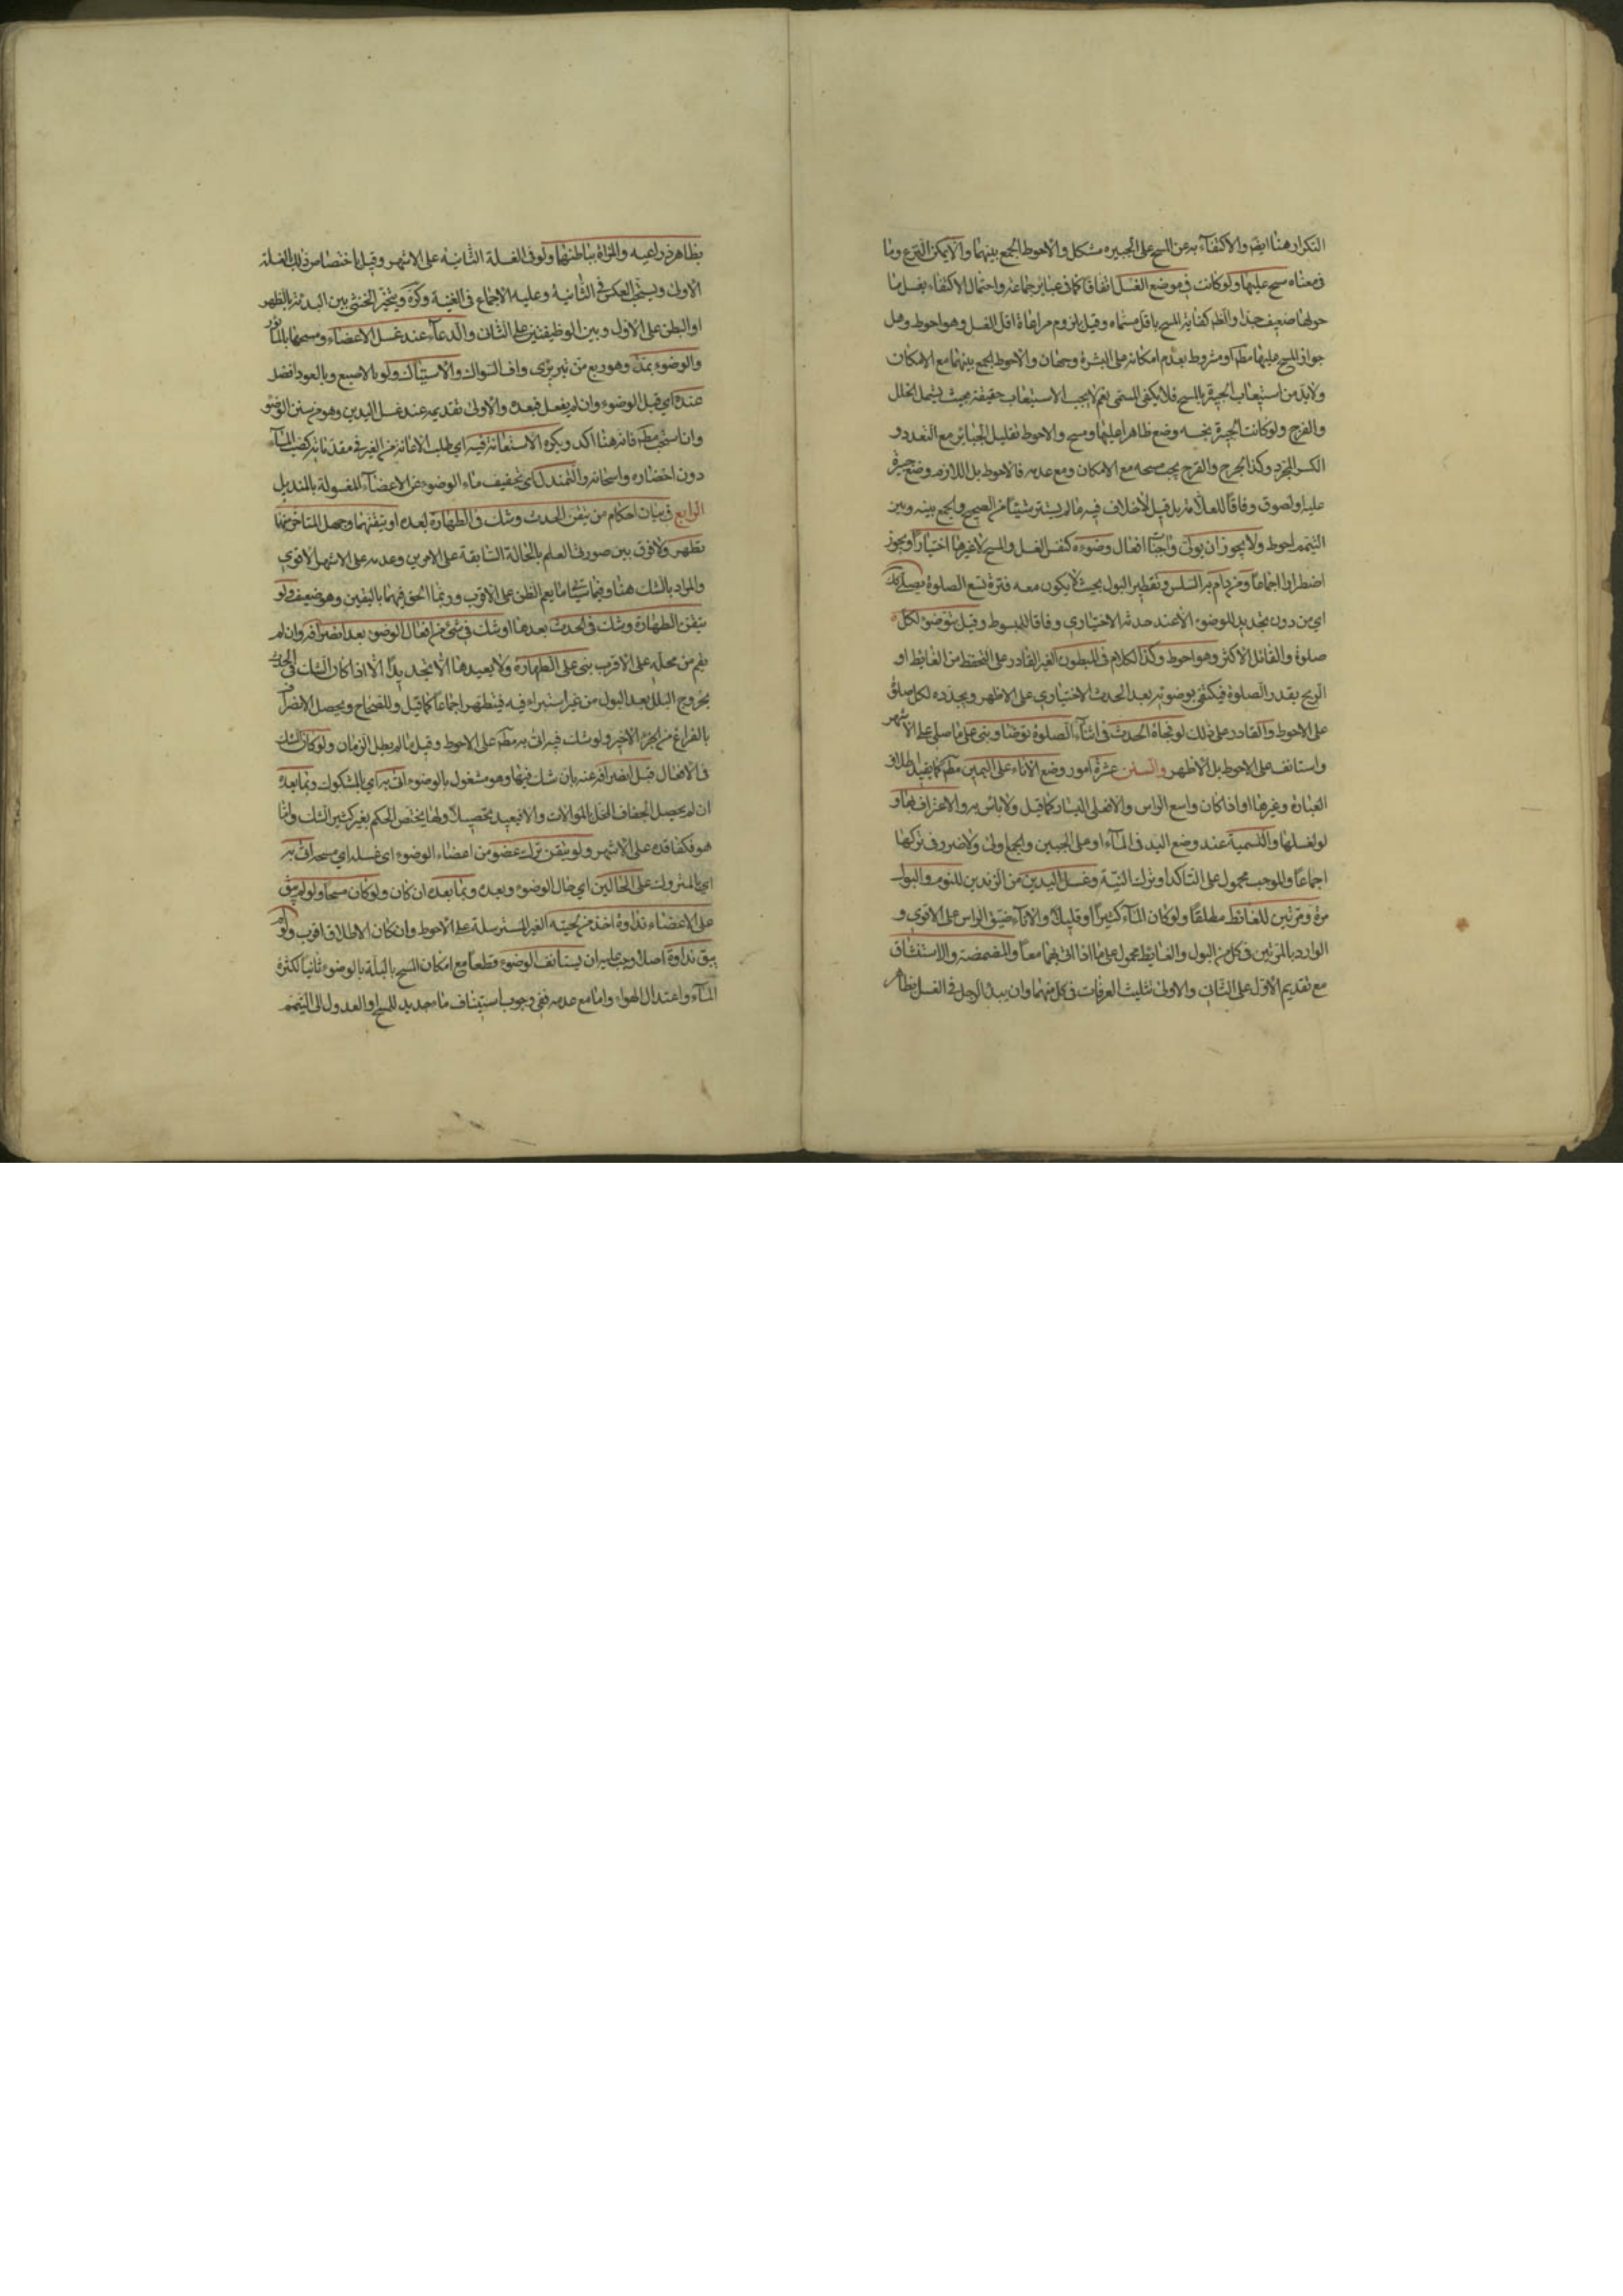 التكرار هنا ايضا والاكتفآء به عن المسح على الجبيره مشكل والاحوط الجمع بينهما والا يمكن النزع وما
فى معناه مسح عليها ولو كانت فى موضع الغسل اتفاقا كما فى عبائر جماعة واحتمال الاكتفاء بغسل ما
حولها ضعيف جدا والظ كفاية المسح باقل مسماه وقيل بلزوم مراعاة اقل الغسل وهو احوط وهل
جواز المسح عليها مطلقا او مشروط بعدم امكانه على البشرة وجهان والاحوط الجمع بينهما مع الامكان
ولا بد من استيعاب الجبيرة بالمسح فلا يكفى المسمى نعم لا يجب الاستيعاب حقيقة بحيث يشمل الخلل
والفرج ولو كانت الجبيرة نجسه وضع طاهرا عليها ومسح والاحوط تقليل الجبائر مع التعدد و
الكسر المجرد وكذا الجرح والقرح يجب مسحه مع الامكان ومع عدمه فالاحوط بل اللازم وضع جبيرة
عليه او لصوق وفاقا للعلامة بل قيل لا خلاف فيه ما لم يستتر شيئا من الصحيح والجمع بينه وبين
التيمم احوط ولا يجوز ان يولى واجبا افعال وضوءه كنفس الغسل والمسح لا غيرها اختيارا ويجوز
اضطرارا اجماعا ومن دام به السلس وتقطير البول بحيث لا يكون معه فترة تسع الصلوة يصلى كك
اى من دون تجديد للوضوء الا عند حدثه الاختيارى وفاقا للمبسوط وقيل يتوضؤ لكل
صلوة والقائل الاكثر وهو احوط وكذا الكلام فى المبطون الغير القادر على التحفظ من الغايط او
الريح بقدر الصلوة فيكتفى بوضوئه بعد الحدث الاختيارى على الاظهر ويجدده لكل صلوة
على الاحوط والقادر على ذلك لو فجاة الحدث فى اثنآء الصلوة توضا وبنى على ما صلى على الاشهر
واستانف على الاحوط بل الاظهر والسنن عشرة امور وضع الاناء على اليمين مطلقا كما يفيد اطلاق
العبارة وغيرها او اذا كان واسع الراس والافعلى اليسار كما قيل ولا باس به والاغتراف بها و
لو لغسلها والتسمية عند وضع اليد فى المآء او على الجبين والجمع اولى ولا ضرر فى تركها
اجماعا والموجب محمول على التاكد او ترك النية وغسل اليدين من الزندين للنوم والبول
مرة ومرتين للغائط مطلقا ولو كان المآء كثيرا او قليلا والانآء ضيق الراس على الاقوى و
الوارد بالمرتين فى كل من البول والغايط محمول على ما اذا اتى بهما معا والمضمضة والاستنشاق
مع تقديم الاول على الثانى والاولى تثليث الغرفات فى كل منهما وان يبدا الرجل فى الغسل بظاهر
بظاهر ذراعيه والمراة بباطنهما ولو فى الغسلة الثانية على الاشهر وقيل باختصاص ذلك بالغسلة
الاولى ويستحب العكس فى الثانية وعليه الاجماع فى الغنية وكرة ويتخير الخنثى بين البدئة بالظهر
او البطن على الاول وبين الوظيفتين على الثانى والدعآء عند غسل الاعضاء ومسحها بالماثور
والوضوء بمد وهو ربع من تبريزى واف السواك والاستياك ولو بالاصبع وبالعود افضل
عنده اى قبل الوضوء وان لم يفعل فبعده والاولى تقديمه عند غسل اليدين وهو من سنن الوضوء
وان استحب مطلقا فانه هنا اكد ويكره الاستعانة فيه اى طلب الاعانة من الغير فى مقدماته كصب المآء
دون احضاره واسخانه والتمندل اى تجفيف ماء الوضوء عن الاعضآء المغسولة بالمنديل
الرابع فى بيان احكام من تيقن الحدث وشك فى الطهارة بعده او تيقنهما وجهل المتاخر منهما
تطهر ولا فرق بين صورتى العلم بالحالة السابقة على الامرين وعدمه على الاشهر الاقوى
والمراد بالشك هنا وفيما سياتى ما يعم الظن على الاقرب وربما الحق فيهما باليقين وهو ضعيف ولو
تيقن الطهارة وشك فى الحدث بعدها او شك فى شئ من افعال الوضوء بعد انصرافه وان لم
يقم من محله على الاقرب بنى على الطهارة ولا يعيدها الا تجديدا الا اذا كان الشك فى الحدث
بخروج البلل بعد البول من غير استبراء فيه فيتطهر اجماعا كما قيل وللصحاح ويحصل الانصراف
بالفراغ من الجزء الاخير ولو شك فيه اتى به مطلقا على الاحوط وقيل ما لم يطل الزمان ولو كان الشك
فى الافعال قبل انصرافه عنه بان شك فيها وهو مشغول بالوضوء اتى به اى بالمشكوك وبما بعده
ان لم يحصل الجفاف المخل بالموالات والا فيعيد تحصيلا ولها يختص الحكم بغير كثير الشك واما
هو فكفاقده على الاشهر ولو تيقن ترك عضو من اعضاء الوضوء اى غسله او مسحه اتى به
اى بالمتروك على الحالين اى حال الوضوء وبعده وبما بعده ان كان ولو كان مسحا ولو لم يبق
على الاعضاء نداوة اخذ من لحيته الغير المسترسلة على الاحوط وان كان الاطلاق اقرب ولو لم
يبق نداوة اصلا وجب عليه ان يستانف الوضوء قطعا مع امكان المسح بالبلة بالوضوء ثانيا لكثرة
المآء واعتدال الهواء واما مع عدمه ففى وجوب استيناف ماء جديد للمسح او العدول الى التيمم